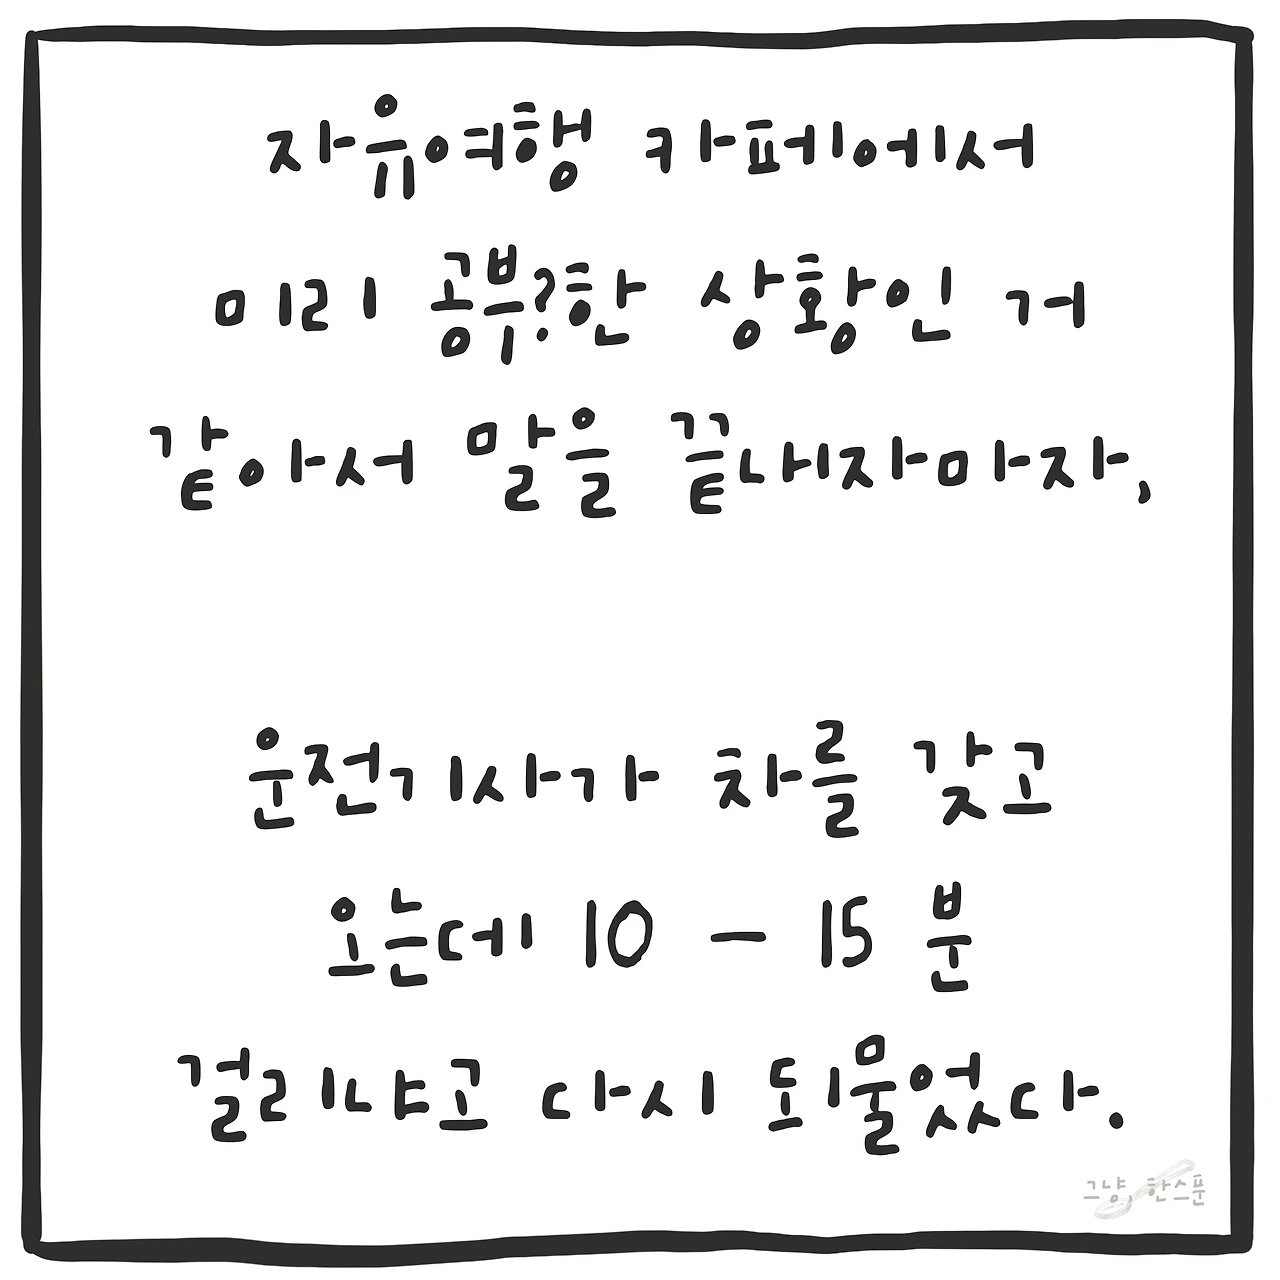 자유여행 카페에서
미리 공부?한 상황인 거
같아서 말을 끝내자마자,
운전기사가 차를 갖고
오는데 10 - 15 분
걸리냐고 다시 되물었다.
그냥, 한스푼